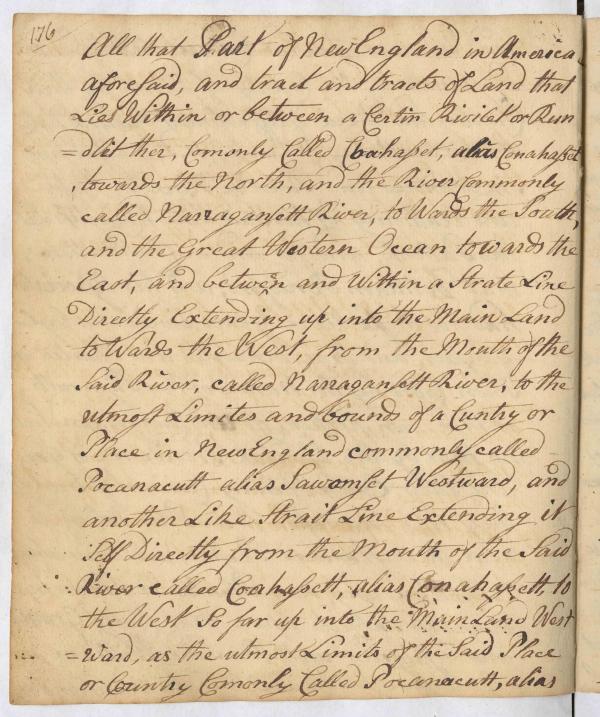 176
All that Part of NewEngland in America
aforeSaid, and tract and tracts of Land that
Lies Within or between a Certin Rivilet or Run
=dlit ther, Comonly Called Coahasset, alias Conahasset
towards the North, and the River Commonly
called Narragansett River, to Wards the South,
and the Great Western Ocean towards the
East, and betwen and Within a Strate Line
Directly Extending up into the Main Land
to Wards the West, from the Mouth of the
Said River, called Narragansett River, to the
utmost Limites and bounds of a Cuntry or
Place in NewEngland commonly called
Pocanacutt alias Sawomset Westward, and
another Like Strait Line Extending it
Self Directly from the Mouth of the Said
River called Coahassett, alias Conahassett, to
the West So far up into the Main Land West
=Ward, as the utmost Limits of the Said Place
or Country Comonly Called Pocanacutt, alias